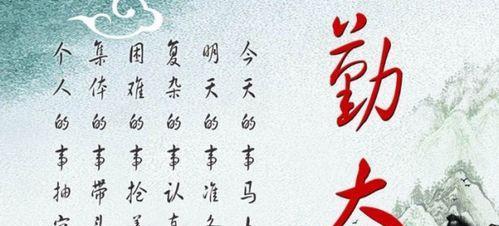 勤
今天的事马上
明天的事准备
复杂的事认真
困难的事抢着
集体的事带头
个人的事抽空